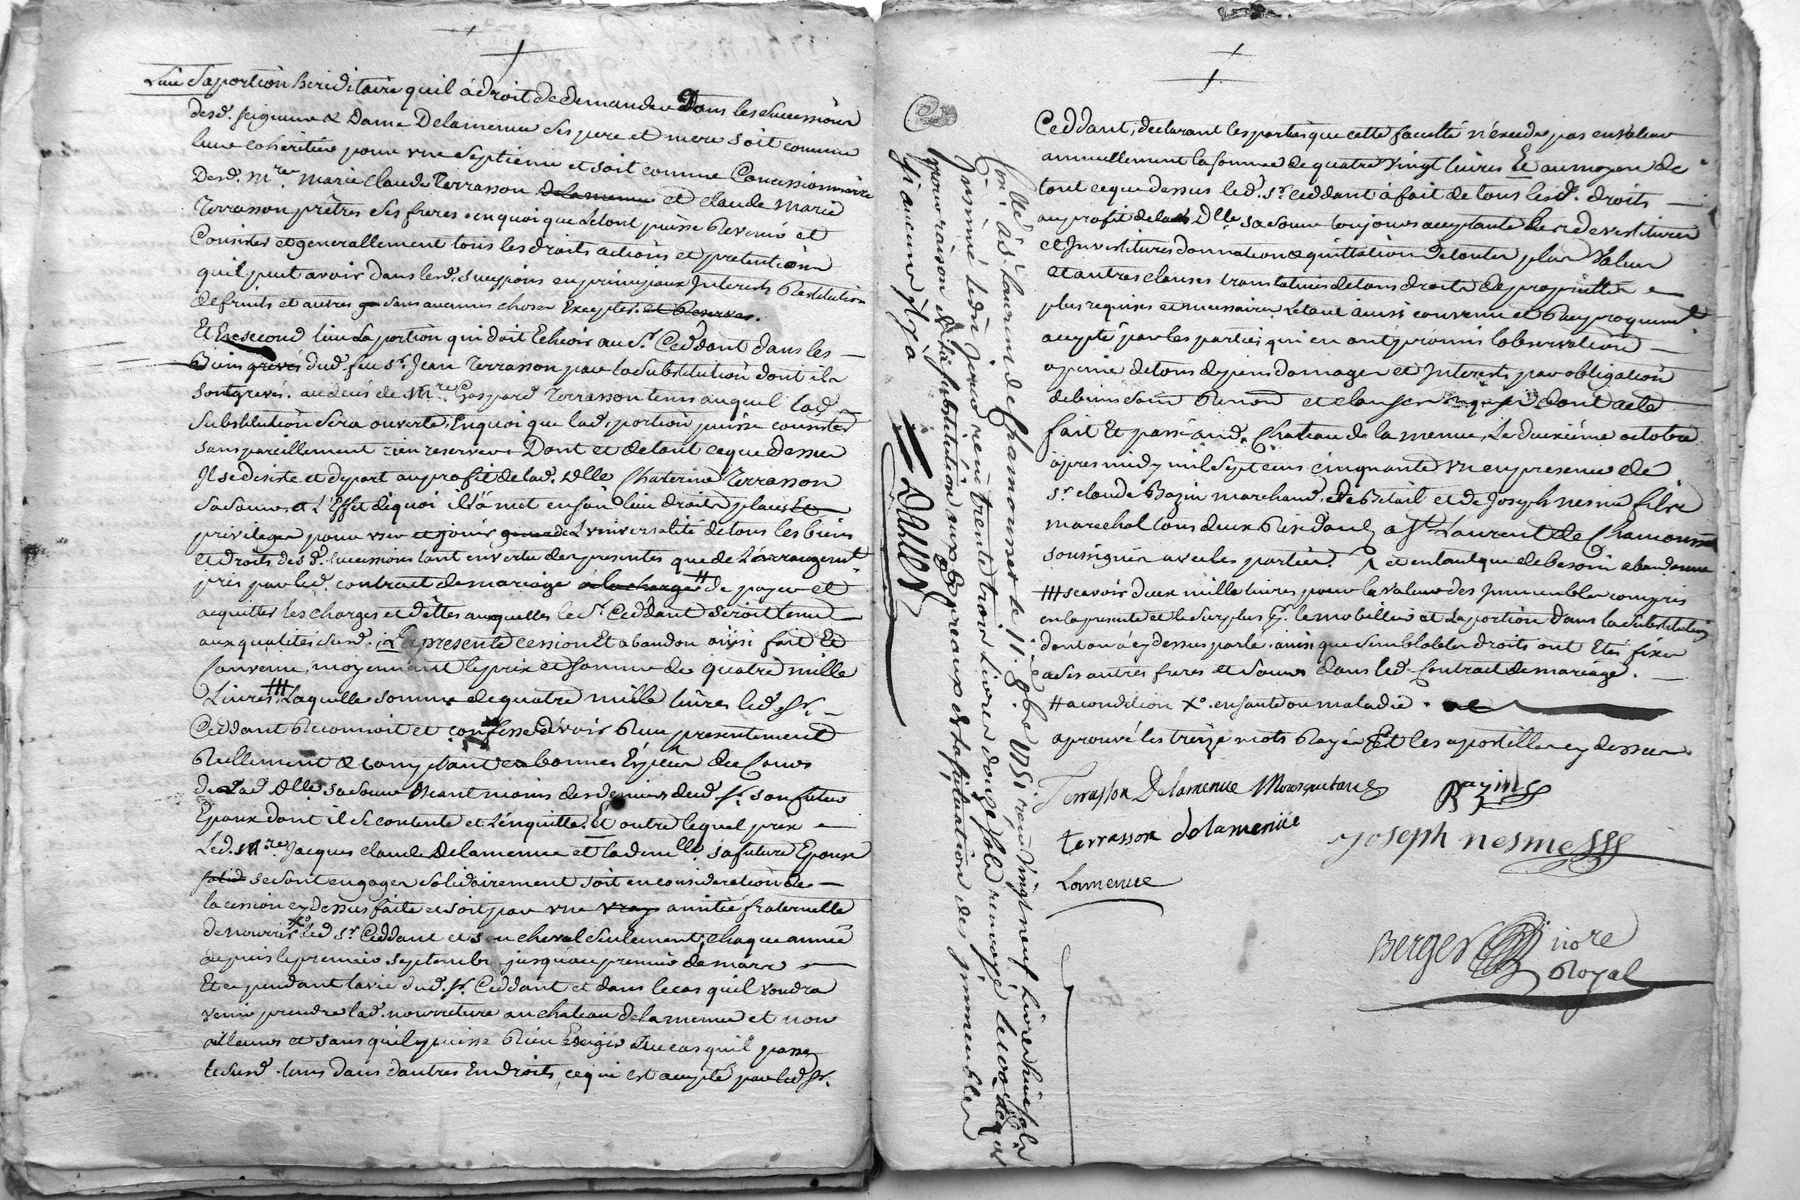 Lieu Saportion hereditaire quil à droit de demander Dans les Successions
desd. seigneur & Dame Delamenue Ses pere et mere soit comme
leur coheritier pour une Septieme et soit comme Concessionnaire
Desd. mres. marie claude terrasson delamenue et claude marie
terrasson prêtres Ses freres enquoi que letout puisse Revenir et
Consister et generallement tous les droits actions et pretentions
quil peut avoir dans lesd. successions en principaux Interests Restitution
de fruits et autres Sans aucunes choses Excepter et Reserver.
Et En second lieu La portion qui doit Echeoir au Sr. Ceddant dans les
Biens grevés dud. feu sr. Jean terrasson par la Substitution dont ils
sont grevés au decés de Mre. Gaspard terrasson tems auquel lad.
Substitution Sera ouverte, Enquoi que lad. portion puisse consister
sans pareillement rien reserver Dont et detout ceque dessus
Il se desiste et depart au profit de lad. Dlle Chaterine Terrasson
Sa Soeur, et L'Effet dequoi il l'a met en son lieu droits place Et
privileges pour user et jouir de L'universalité de tous les biens
et droits desd. successions tant en vertu des presentes que de L'arrangement
pris par led. contrat de mariage à la charge # de payer et
acquitter les charges et dettes auxquelles le sr. Ceddant Seroit tenu
aux qualités susd. La presente cession Et abandon ainsi fait Et
Convenu, moyennant le prix et Somme de quatre mille
Livres ### Laquelle somme de quatre mille livres led. sr.
Ceddant Reconnoit et confesse avoir Reçu presentement
Reellement & comptant en bonnes Espèces du Cours
de Lad. Dlle sa Soeur des deniers dud. sr. son futur
Epoux dont il se contente et L'enquitte. Et outre lequel prix
Led. Mre Jacques claude Delamenue et lad. Dlle. sa future Epouse
solid se sont engagés Solidairement soit en consideration de
la cession cy dessus faite et soit par une vraye amitié fraternelle
de nourrir led sr. Ceddant et son cheval Seulement, chaque année
depuis le premier septembre jusqu'au premier de mars
Et ce pendant la vie dud. sr. Ceddant et dans le cas quil voudra
venir prendre lad. nourriture au chateau de lamenue et non
ailleurs et sans quil y puisse Rien Exiger au cas quil passe
le susd. tems dans d'autres Endroits, ce qui est accepté par led sr.
Ceddant, declarant les parties que cette faculté n'excede pas en valeur
annuellement la somme de quatre vingt livres Et au moyen de
tout ce que dessus led. sr. Ceddant à fait de tous lesd. droits
au profit de lad Dlle. sa soeur toujours acceptante
et Investitures donnation & quittation de toutes plus Values
et autres clauses translatives de tous droits de proprietté
plus requises et necessaires Letout ainsi convenu et Reciproquement
accepté par les parties qui en ont promis L'observation
a peine de tous depens domages et Interests par obligation
de biens et clauses requises Dont acte
fait Et passé aud. Chateau de la menue, Le deuxième octobre
après midy mil Sept cens cinquante un en presence de
Sr. claude Bazin marchand, de Betail et de Joseph nesme fils
marechal tous deux Residants a St. Laurent de Chamousset
soussignés avec les parties. et en tant que de besoin abandonne
### scavoir deux mille livres pour la valeur des Immeubles compris
en la presente et le surplus pr. le mobilier et La portion dans la substitution
dont on à cy dessus parlé ainsi que semblables droits ont Etés fixés
a Ses autres freres et Soeurs dans led. Contrat de mariage.
# a condition Xo. en santé ou maladie.
aprouvé les treize mots Rayés Et les apostilles cy dessus
Terrasson Delamenue Mousquetaire
Bazin
terrasson delamenüe
Joseph nesme
Lamenue
Berger nore
Royal
Con lle. à St Laurent de Chamousset le 11. 8bre 1751 reçu vingt neuf livres huit sols
Insinué ledit jour reçu trente trois livres douze sols renvoyé
pour raison de la substitution aux Bureaux de la situation des immeubles
si aucuns y a
Dalles